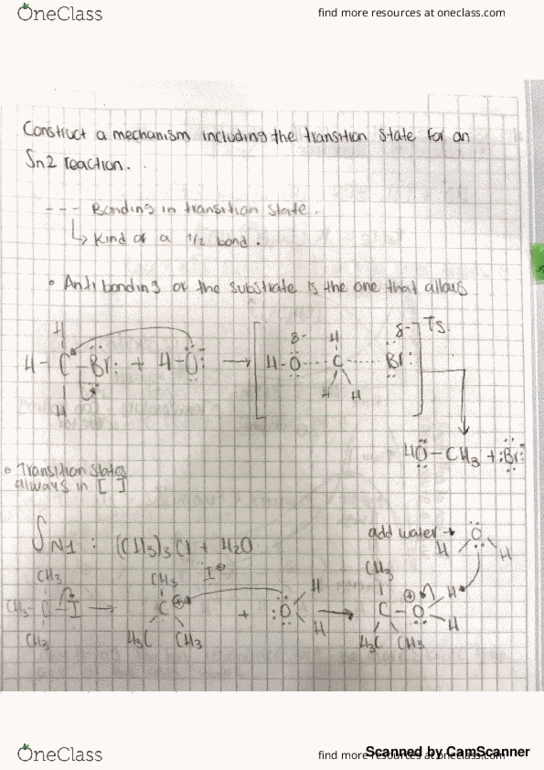 OneClass
find more resources at oneclass.com
Construct a mechanism including the transition state for an
Sn2 reaction.
--- Bonding in transition state.
↳ Kind of a 1/2 bond.
• Antibonding of the substrate is the one that allows
H
H-C-Br: + H-Ö: → [ H-Ö ---- C ---- Br: ] Ts.
δ- H δ-
H
H H
HÖ-CH3 + :Br:
• Transition states
always in [ ]
SN1: (CH3)3Cl + H2O
add water →
O
H H
CH3
CH3-C-I →
CH3
CH3
I⊖
C⊕
H3C CH3
+
:O
H
H
→
CH3
C-O
⊕
H
H
H3C CH3
OneClass
find more resources at oneclass.com
Scanned by CamScanner